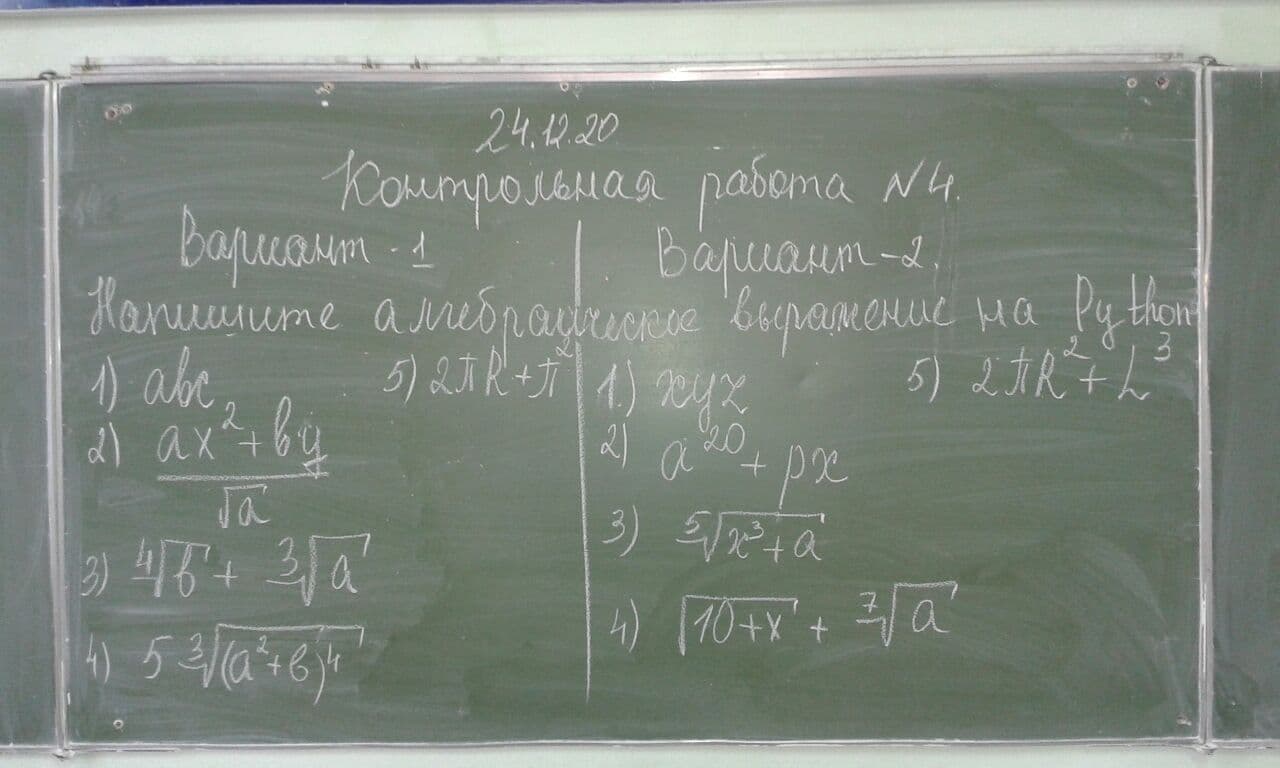 24.12.20
Контрольная работа №4.
Вариант-1
Вариант-2.
Напишите алгебраическое выражение на Python
1) abc
5) 2πR+π²
2) (ax²+by)/√a
3) ⁴√b + ³√a
4) 5 ³√(a²+b)⁴
1.) xyz
5) 2πR²+L³
2) a²⁰+px
3) ⁵√(x³+a)
4) √(10+x) + ⁷√a